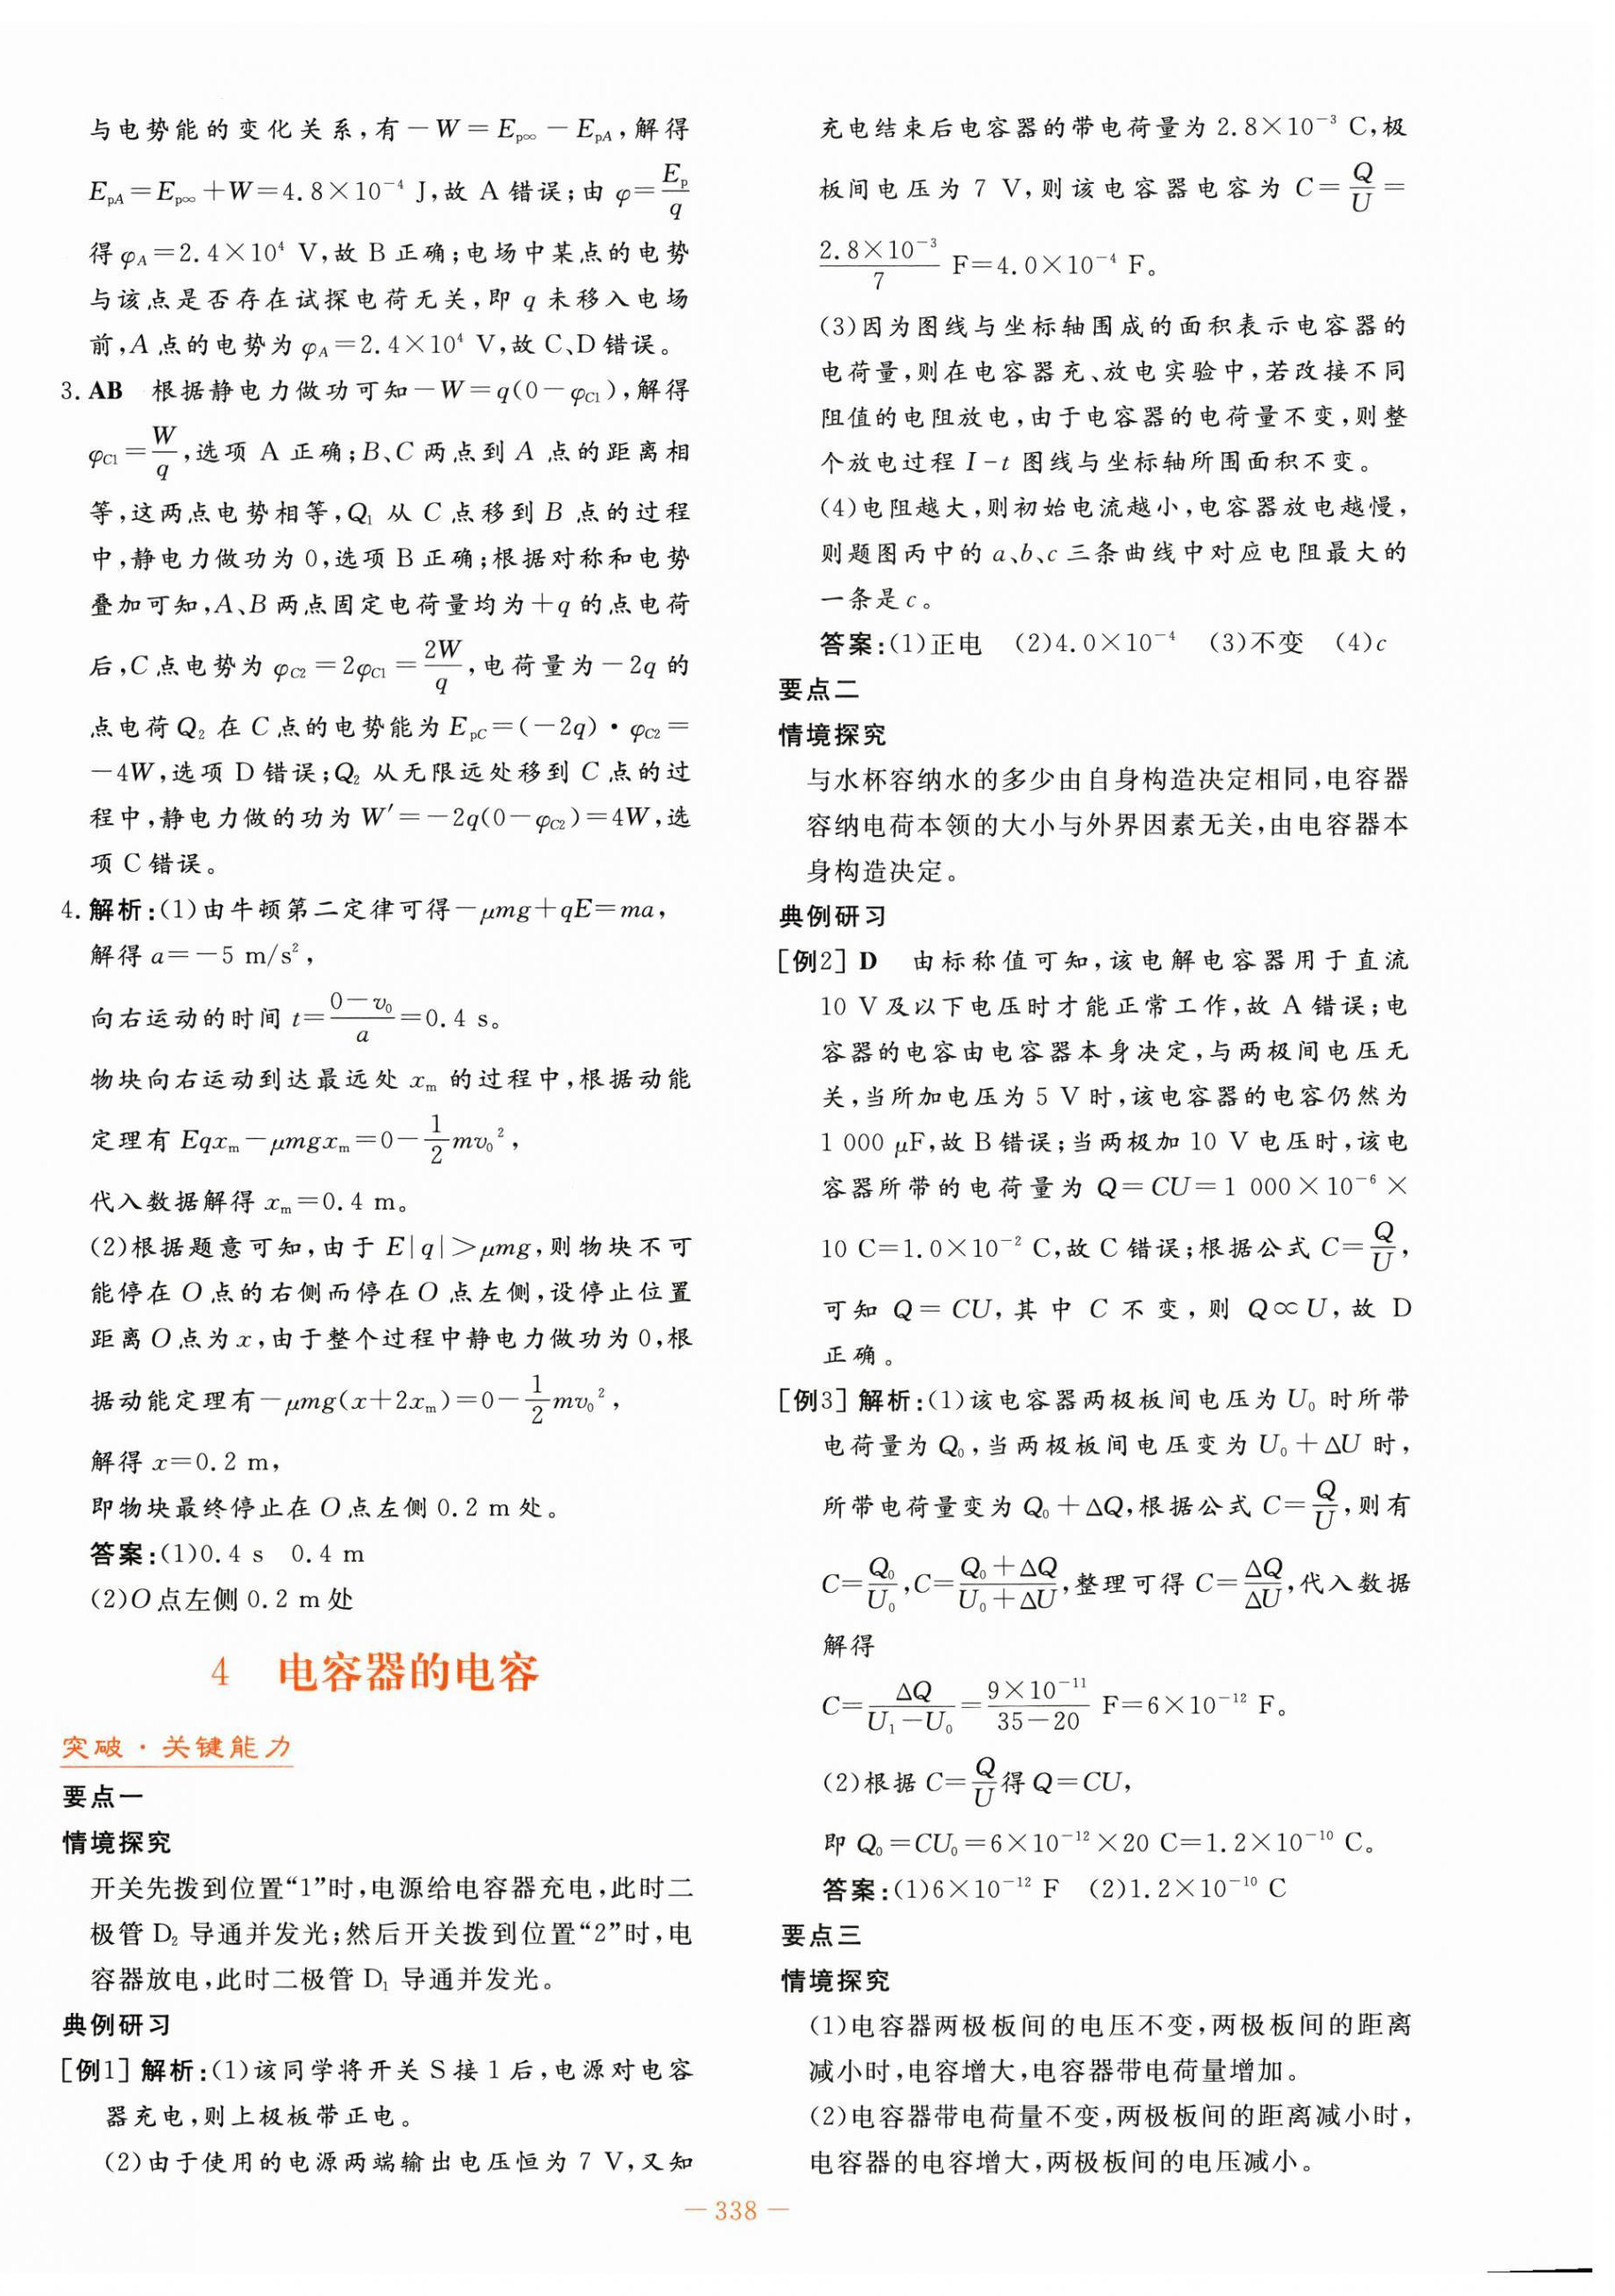 与电势能的变化关系,有－W＝Ep∞－EpA,解得
EpA＝Ep∞＋W＝4.8×10⁻⁴ J,故 A 错误;由 φ＝Ep/q
得 φA＝2.4×10⁴ V,故 B 正确;电场中某点的电势
与该点是否存在试探电荷无关,即 q 未移入电场
前,A 点的电势为 φA＝2.4×10⁴ V,故 C、D 错误。
3. AB 根据静电力做功可知－W＝q(0－φC1),解得
φC1＝W/q,选项 A 正确;B、C 两点到 A 点的距离相
等,这两点电势相等,Q₁ 从 C 点移到 B 点的过程
中,静电力做功为 0,选项 B 正确;根据对称和电势
叠加可知,A、B 两点固定电荷量均为＋q 的点电荷
后,C 点电势为 φC2＝2φC1＝2W/q,电荷量为－2q 的
点电荷 Q₂ 在 C 点的电势能为 EpC＝(－2q)·φC2＝
－4W,选项 D 错误;Q₂ 从无限远处移到 C 点的过
程中,静电力做的功为 W′＝－2q(0－φC2)＝4W,选
项 C 错误。
4. 解析:(1)由牛顿第二定律可得－μmg＋qE＝ma,
解得 a＝－5 m/s²,
向右运动的时间 t＝(0－v₀)/a＝0.4 s。
物块向右运动到达最远处 xm 的过程中,根据动能
定理有 Eqxm－μmgxm＝0－1/2mv₀²,
代入数据解得 xm＝0.4 m。
(2)根据题意可知,由于 E|q|＞μmg,则物块不可
能停在 O 点的右侧而停在 O 点左侧,设停止位置
距离 O 点为 x,由于整个过程中静电力做功为 0,根
据动能定理有－μmg(x＋2xm)＝0－1/2mv₀²,
解得 x＝0.2 m,
即物块最终停止在 O 点左侧 0.2 m 处。
答案:(1)0.4 s 0.4 m
(2)O 点左侧 0.2 m 处
4 电容器的电容
突破·关键能力
要点一
情境探究
开关先拨到位置“1”时,电源给电容器充电,此时二
极管 D₂ 导通并发光;然后开关拨到位置“2”时,电
容器放电,此时二极管 D₁ 导通并发光。
典例研习
[例1] 解析:(1)该同学将开关 S 接 1 后,电源对电容
器充电,则上极板带正电。
(2)由于使用的电源两端输出电压恒为 7 V,又知
充电结束后电容器的带电荷量为 2.8×10⁻³ C,极
板间电压为 7 V,则该电容器电容为 C＝Q/U＝
2.8×10⁻³/7 F＝4.0×10⁻⁴ F。
(3)因为图线与坐标轴围成的面积表示电容器的
电荷量,则在电容器充、放电实验中,若改接不同
阻值的电阻放电,由于电容器的电荷量不变,则整
个放电过程 I-t 图线与坐标轴所围面积不变。
(4)电阻越大,则初始电流越小,电容器放电越慢,
则题图丙中的 a、b、c 三条曲线中对应电阻最大的
一条是 c。
答案:(1)正电 (2)4.0×10⁻⁴ (3)不变 (4)c
要点二
情境探究
与水杯容纳水的多少由自身构造决定相同,电容器
容纳电荷本领的大小与外界因素无关,由电容器本
身构造决定。
典例研习
[例2] D 由标称值可知,该电解电容器用于直流
10 V 及以下电压时才能正常工作,故 A 错误;电
容器的电容由电容器本身决定,与两极间电压无
关,当所加电压为 5 V 时,该电容器的电容仍然为
1 000 μF,故 B 错误;当两极加 10 V 电压时,该电
容器所带的电荷量为 Q＝CU＝1 000×10⁻⁶×
10 C＝1.0×10⁻² C,故 C 错误;根据公式 C＝Q/U,
可知 Q＝CU,其中 C 不变,则 Q∝U,故 D
正确。
[例3] 解析:(1)该电容器两极板间电压为 U₀ 时所带
电荷量为 Q₀,当两极板间电压变为 U₀＋ΔU 时,
所带电荷量变为 Q₀＋ΔQ,根据公式 C＝Q/U,则有
C＝Q₀/U₀,C＝(Q₀＋ΔQ)/(U₀＋ΔU),整理可得 C＝ΔQ/ΔU,代入数据
解得
C＝ΔQ/(U₁－U₀)＝9×10⁻¹¹/(35－20) F＝6×10⁻¹² F。
(2)根据 C＝Q/U得 Q＝CU,
即 Q₀＝CU₀＝6×10⁻¹²×20 C＝1.2×10⁻¹⁰ C。
答案:(1)6×10⁻¹² F (2)1.2×10⁻¹⁰ C
要点三
情境探究
(1)电容器两极板间的电压不变,两极板间的距离
减小时,电容增大,电容器带电荷量增加。
(2)电容器带电荷量不变,两极板间的距离减小时,
电容器的电容增大,两极板间的电压减小。
— 338 —